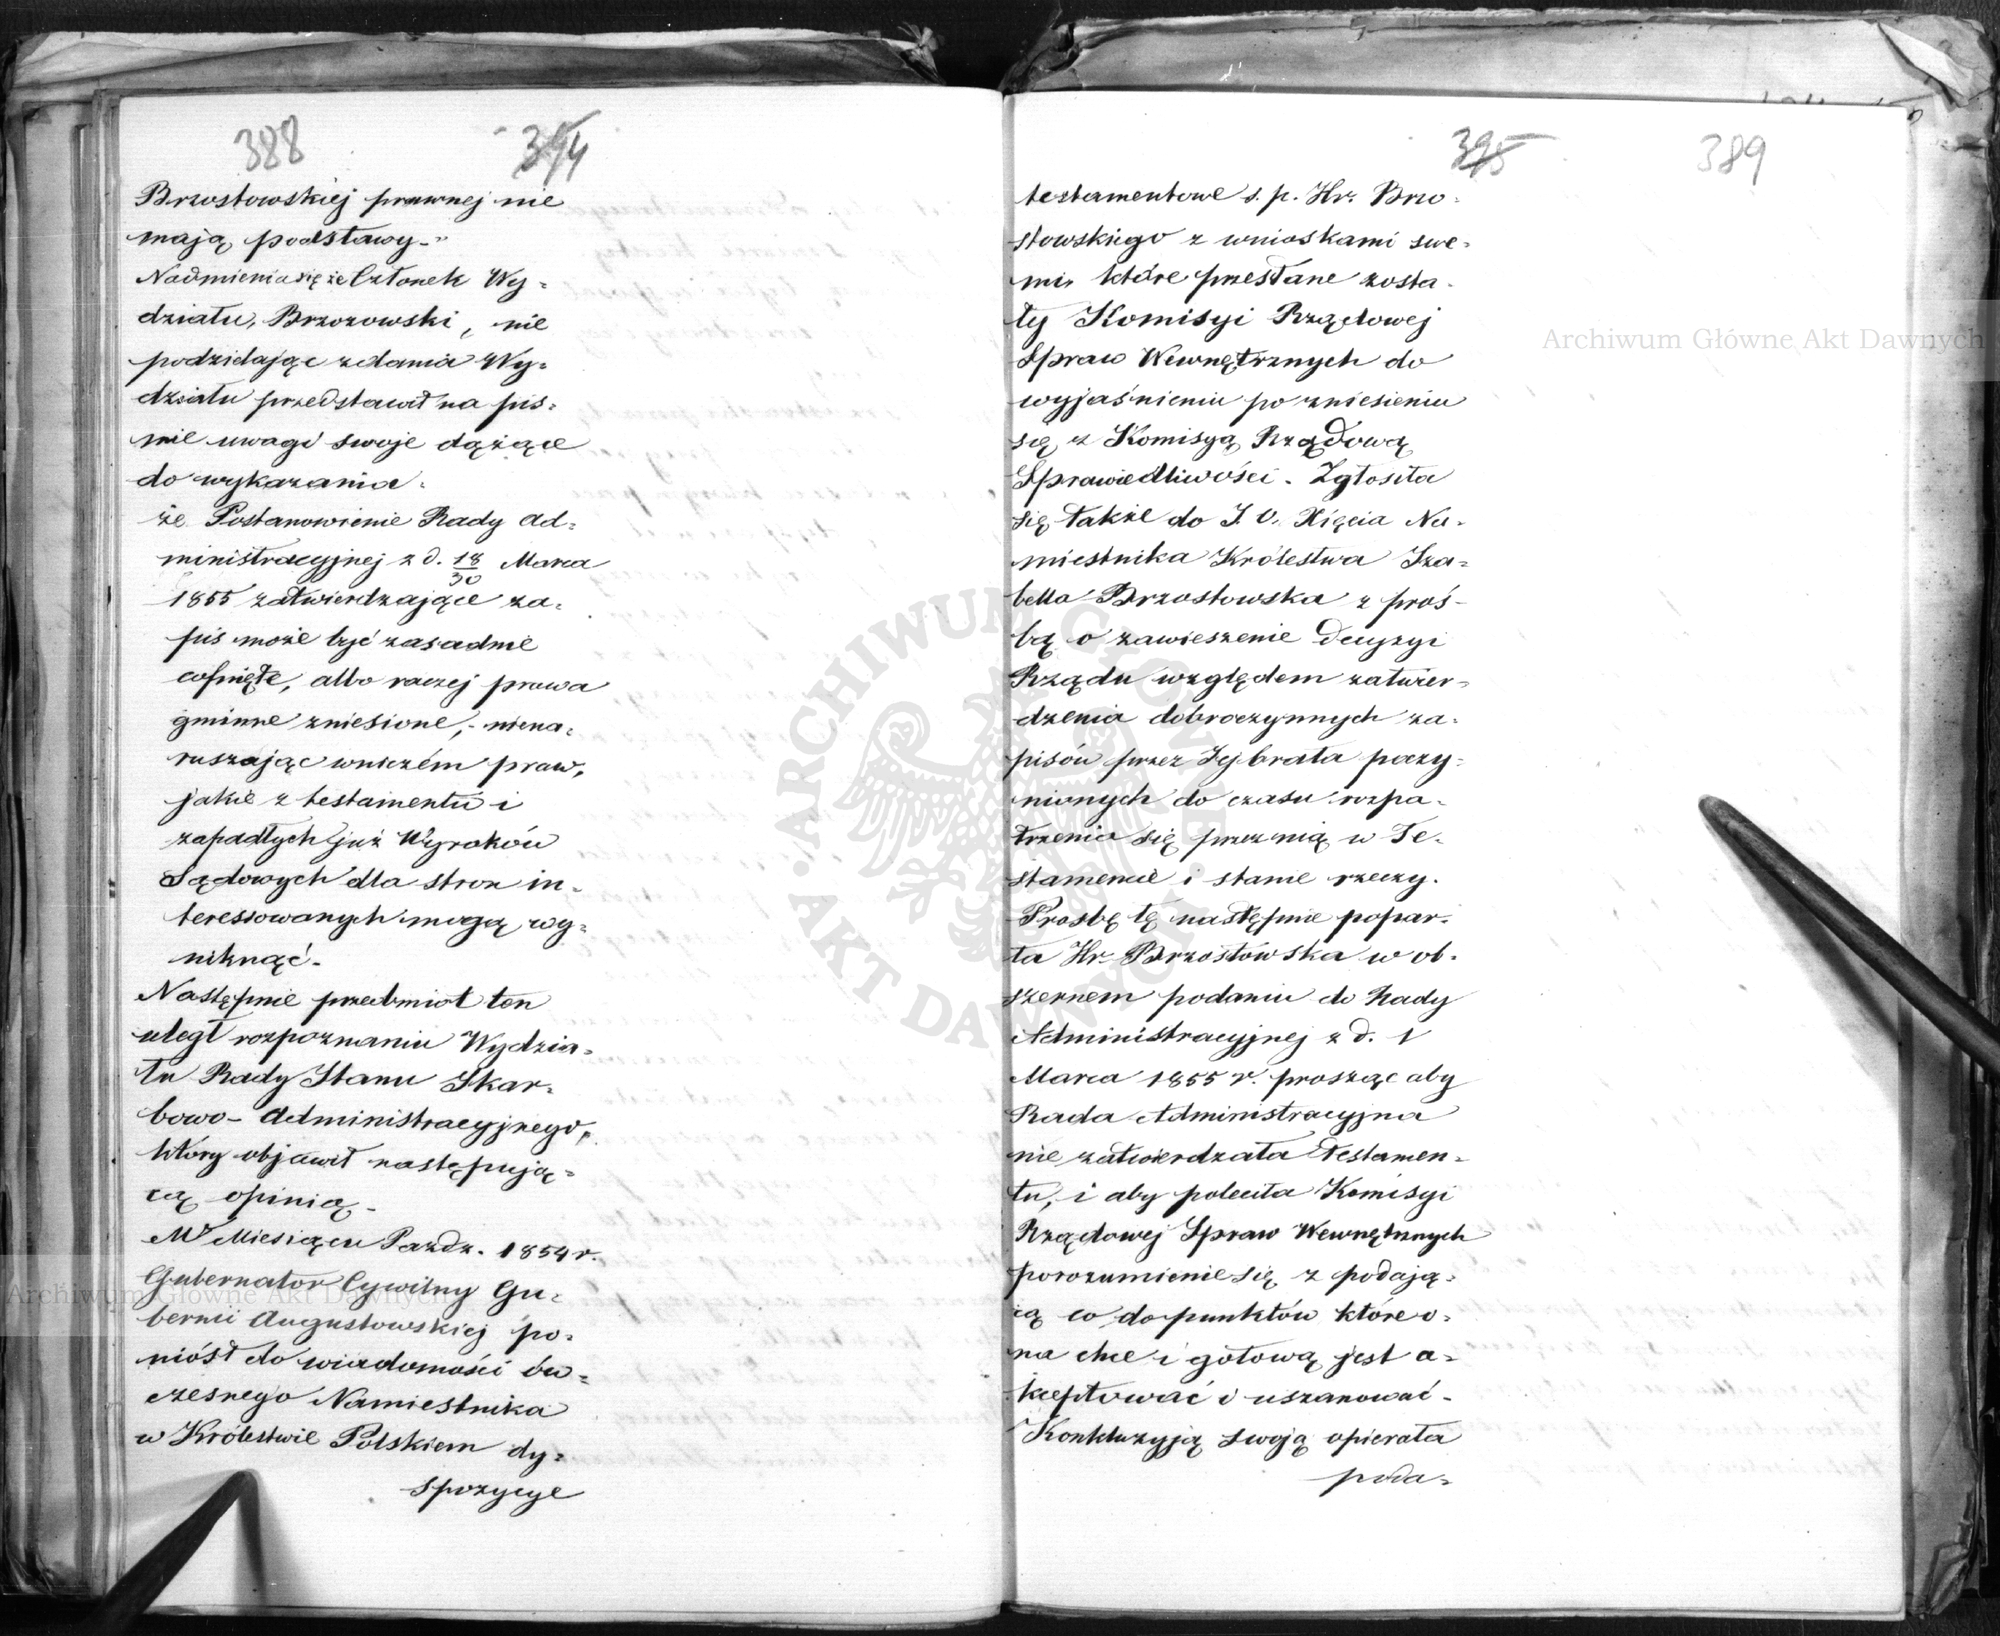 388 394
Brzostowskiej prawnej nie
mają podstawy.-"
Nadmienia się że Członek Wy=
działu, Brzozowski, nie
podzielając zdania Wy=
działu przedstawił na piś=
mie uwagi swoje dążące
do wykazania.
że Postanowienie Rady Ad=
ministracyjnej z d. 18/30 Marca
1855 zatwierdzające za=
pis może być zasadnie
cofnięte, albo raczej prawa
gminne zniesione, niena=
ruszając wniczém praw,
jakie z testamentu i
zapadłych już Wyroków
Sądowych dla stron in=
teressowanych mogą wy=
niknąć.-
Następnie przedmiot ten
uległ rozpoznaniu Wydzia=
łu Rady Stanu Skar=
bowo-Administracyjnego,
który objawił następują=
cą opinią.-
W Miesiącu Pazdz. 1854 r.
Gubernator Cywilny Gu=
bernii Augustowskiej po=
niósł do wiadomości ów=
czesnego Namiestnika
w Królestwie Polskiem dy=
spozycye
395 389
testamentowe s. p. Hr. Brzo=
stowskiego z wnioskami swe=
mi, które przesłane zosta=
ły Komisyi Rządowej
Spraw Wewnętrznych do
wyjaśnieniu po zniesieniu
się z Komisyą Rządową
Sprawiedliwości. Zgłosiła
się także do J. O. Xięcia Na=
miestnika Królestwa Iza=
bella Brzostowska z proś=
bą o zawieszenie decyzyi
Rządu względem zatwier=
dzenia dobroczynnych za=
pisów przez Jej brata poczy=
nionych do czasu rozpa=
trzenia się przez nią w Te=
stamencie i stanie rzeczy.
Prosbę tę następnie popar=
ła Hr. Brzostowska w ob=
szernem podaniu do Rady
Administracyjnej z d. 1
Marca 1855 r. prosząc aby
Rada Administracyjna
nie zatwierdzała Testamen=
tu, i aby poleciła Komisyi
Rządowej Spraw Wewnętrznych
porozumienie się z podają=
cą co do punktów które o=
na chce i gotową jest a=
kceptować i uszanować.
Konkluzyją swoją opierała
poda=
Archiwum Główne Akt Dawnych
Archiwum Główne Akt Dawnych
ARCHIWUM GŁÓWNE AKT DAWNYCH